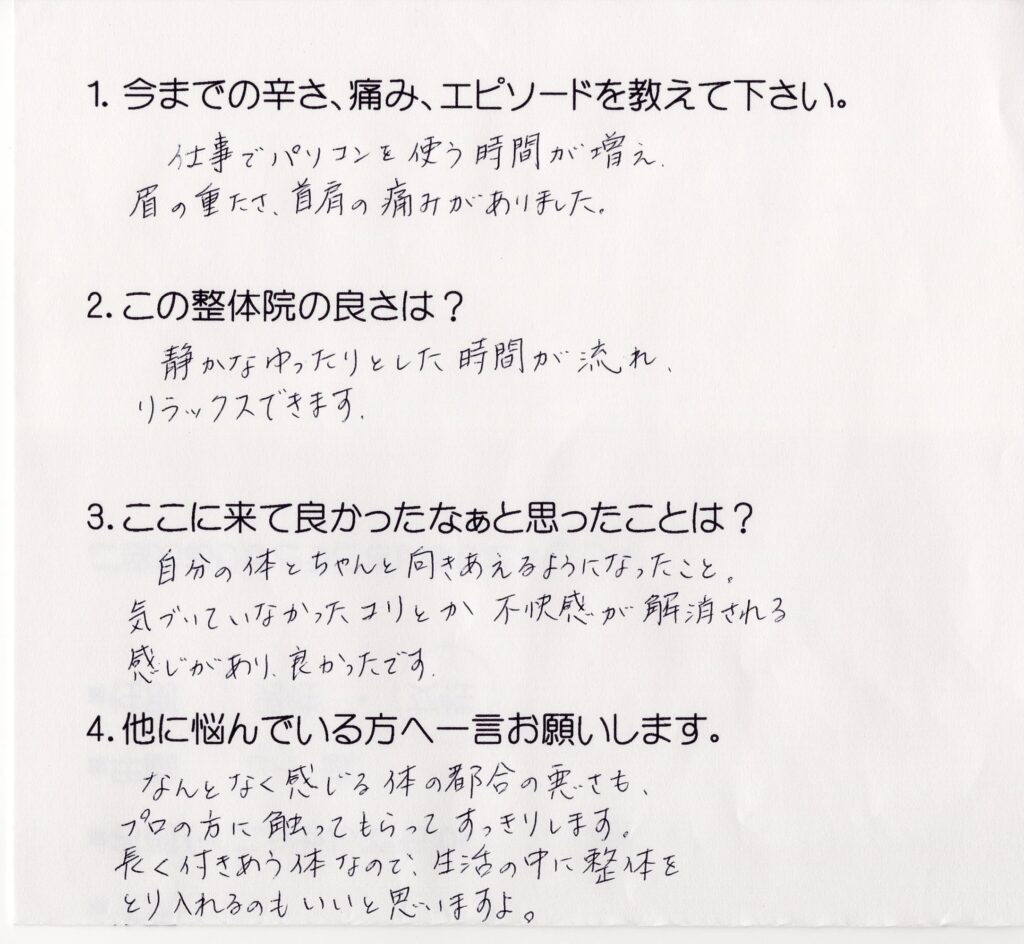 1. 今までの辛さ、痛み、エピソードを教えて下さい。
仕事でパソコンを使う時間が増え、
眉の重たさ、首肩の痛みがありました。
2. この整体院の良さは？
静かなゆったりとした時間が流れ、
リラックスできます。
3. ここに来て良かったなぁと思ったことは？
自分の体とちゃんと向きあえるようになったこと。
気づいていなかったコリとか不快感が解消される
感じがあり、良かったです。
4. 他に悩んでいる方へ一言お願いします。
なんとなく感じる体の都合の悪さも、
プロの方に触ってもらってすっきりします。
長く付きあう体なので、生活の中に整体を
とり入れるのもいいと思いますよ。